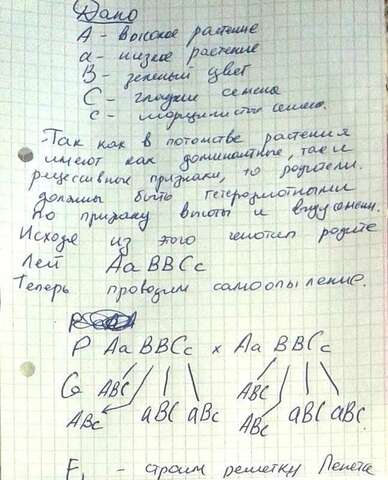 Дано
А - высокое растение
а - низкое растение
В - зеленый цвет
С - гладкие семена
с - морщинистые семена.
Так как в потомстве растения
имеют как доминантные, так и
рецессивные признаки, то родители
должны быть гетерозиготными
по признаку высоты и виду семени.
Исходя из этого генотип родите
лей АаВВСс
Теперь проводим самоопыление.
Р АаВВСс х АаВВСс
G АВС АВс аВС аВс АВС АВс аВС аВс
F₁ - строим решетку Пенета